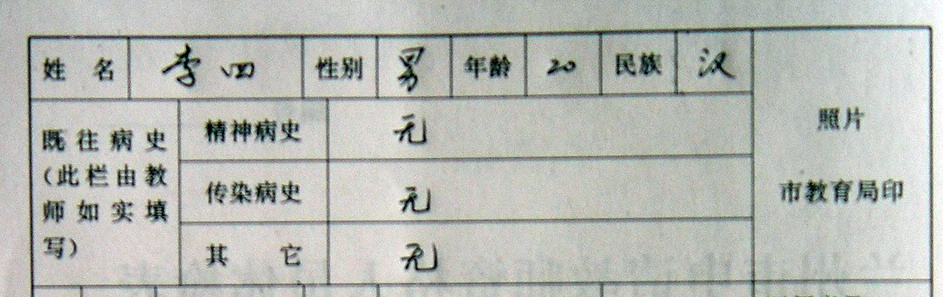 姓名 李四 性别 男 年龄 20 民族 汉
照片
市教育局印
既往病史
(此栏由教
师如实填
写)
精神病史 无
传染病史 无
其它 无